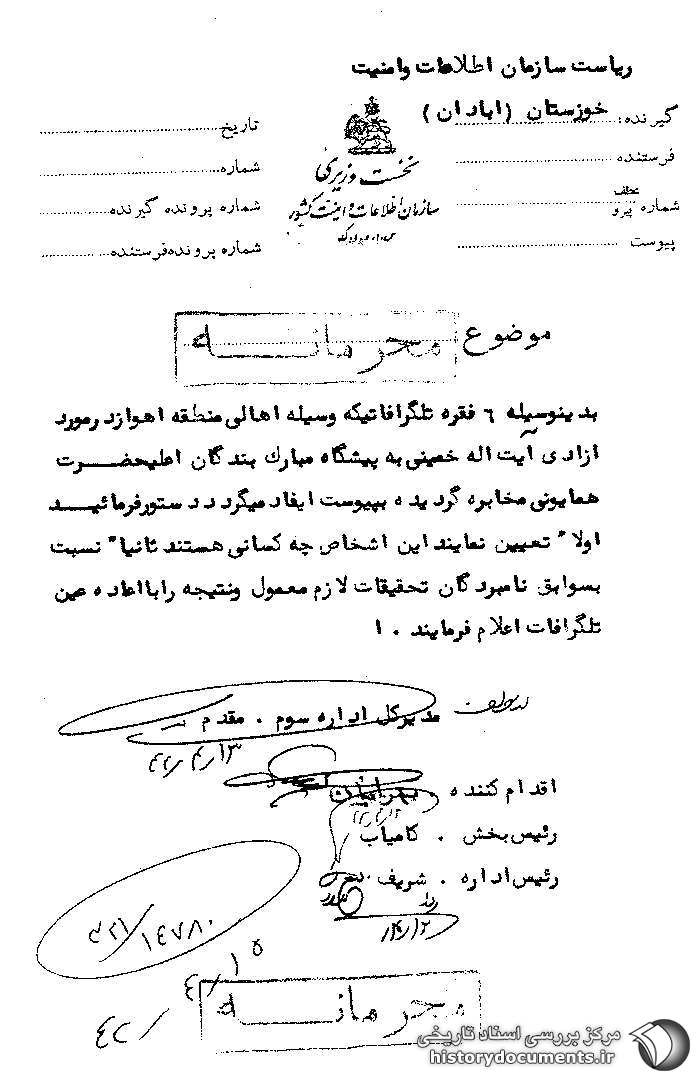 ریاست سازمان اطلاعات وامنیت
گیرنده: خوزستان (ابادان)
فرستنده
شماره عطف پیرو
پیوست
نخست وزیری
سازمان اطلاعات و امنیت کشور
س.ا.و.ا.ک
تاریخ
شماره
شماره پرونده گیرنده
شماره پرونده فرستنده
موضوع
محرمانه
بدینوسیله ٦ فقره تلگرافاتیکه وسیله اهالی منطقه اهواز درمورد
ازادی آیت اله خمینی به پیشگاه مبارك بندگان اعلیحضرت
همایونی مخابره گردیده بپیوست ایفاد میگردد دستور فرمائید
اولا" تعیین نمایند این اشخاص چه کسانی هستند ثانیا" نسبت
بسوابق نامبردگان تحقیقات لازم معمول ونتیجه را با اعاده عین
تلگرافات اعلام فرمایند . ا
مدیرکل اداره سوم . مقدم
۴۲/۴/۱۳
اقدام کننده . بهرامیان
رئیس بخش . کامیاب
رئیس اداره . شریف
۴/۱۲
۳۲۱/۱۴۷۸۰
۴۲/۴/۱۵
محرمانه
مرکز بررسی اسناد تاریخی
historydocuments.ir